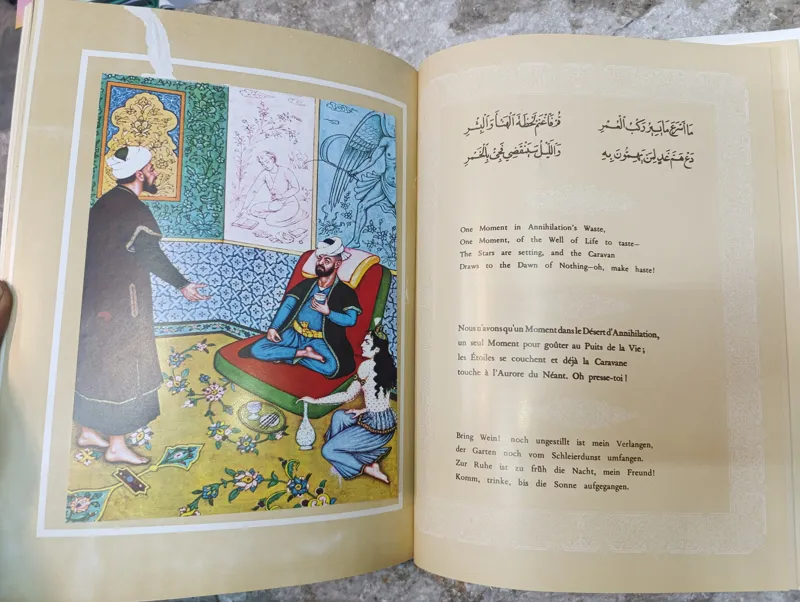 مَا أَسْرَعَ مَا يَسِيرُ رَكْبُ الْعُمْرِ قُمْ فَاغْتَنِمْ لَحْظَةَ الْهَنَا وَالْيُسْرِ
دَعْ هَمَّ غَدٍ لِمَنْ يَهُمُّونَ بِهِ وَاللَّيْلُ سَيَنْقَضِي فَجِئْ بِالْخَمْرِ
One Moment in Annihilation's Waste,
One Moment, of the Well of Life to taste—
The Stars are setting, and the Caravan
Draws to the Dawn of Nothing—oh, make haste!
Nous n'avons qu'un Moment dans le Désert d'Annihilation,
un seul Moment pour goûter au Puits de la Vie;
les Étoiles se couchent et déjà la Caravane
touche à l'Aurore du Néant. Oh presse-toi!
Bring Wein! noch ungestillt ist mein Verlangen,
der Garten noch vom Schleierdunst umfangen.
Zur Ruhe ist zu früh die Nacht, mein Freund!
Komm, trinke, bis die Sonne aufgegangen.